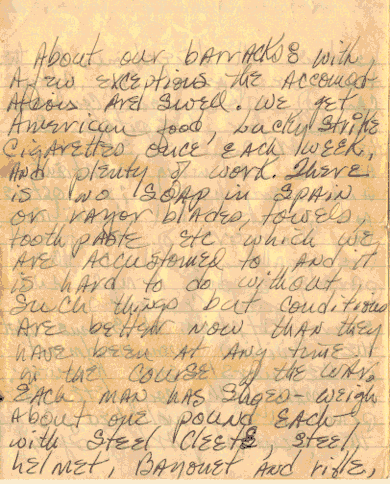 About our barracks with
a few exceptions the accomod-
ations are swell. We get
American food, Lucky Strike
cigarettes once each week,
and plenty of work. There
is no soap in Spain
or razor blades, towels,
tooth paste, etc which we
are accustomed to and it
is hard to do without
such things but conditions
are better now than they
have been at any time
in the course of the war.
Each man has shoes - weigh
about one pound each
with steel cleets, steel
helmet, bayonet and rifle,